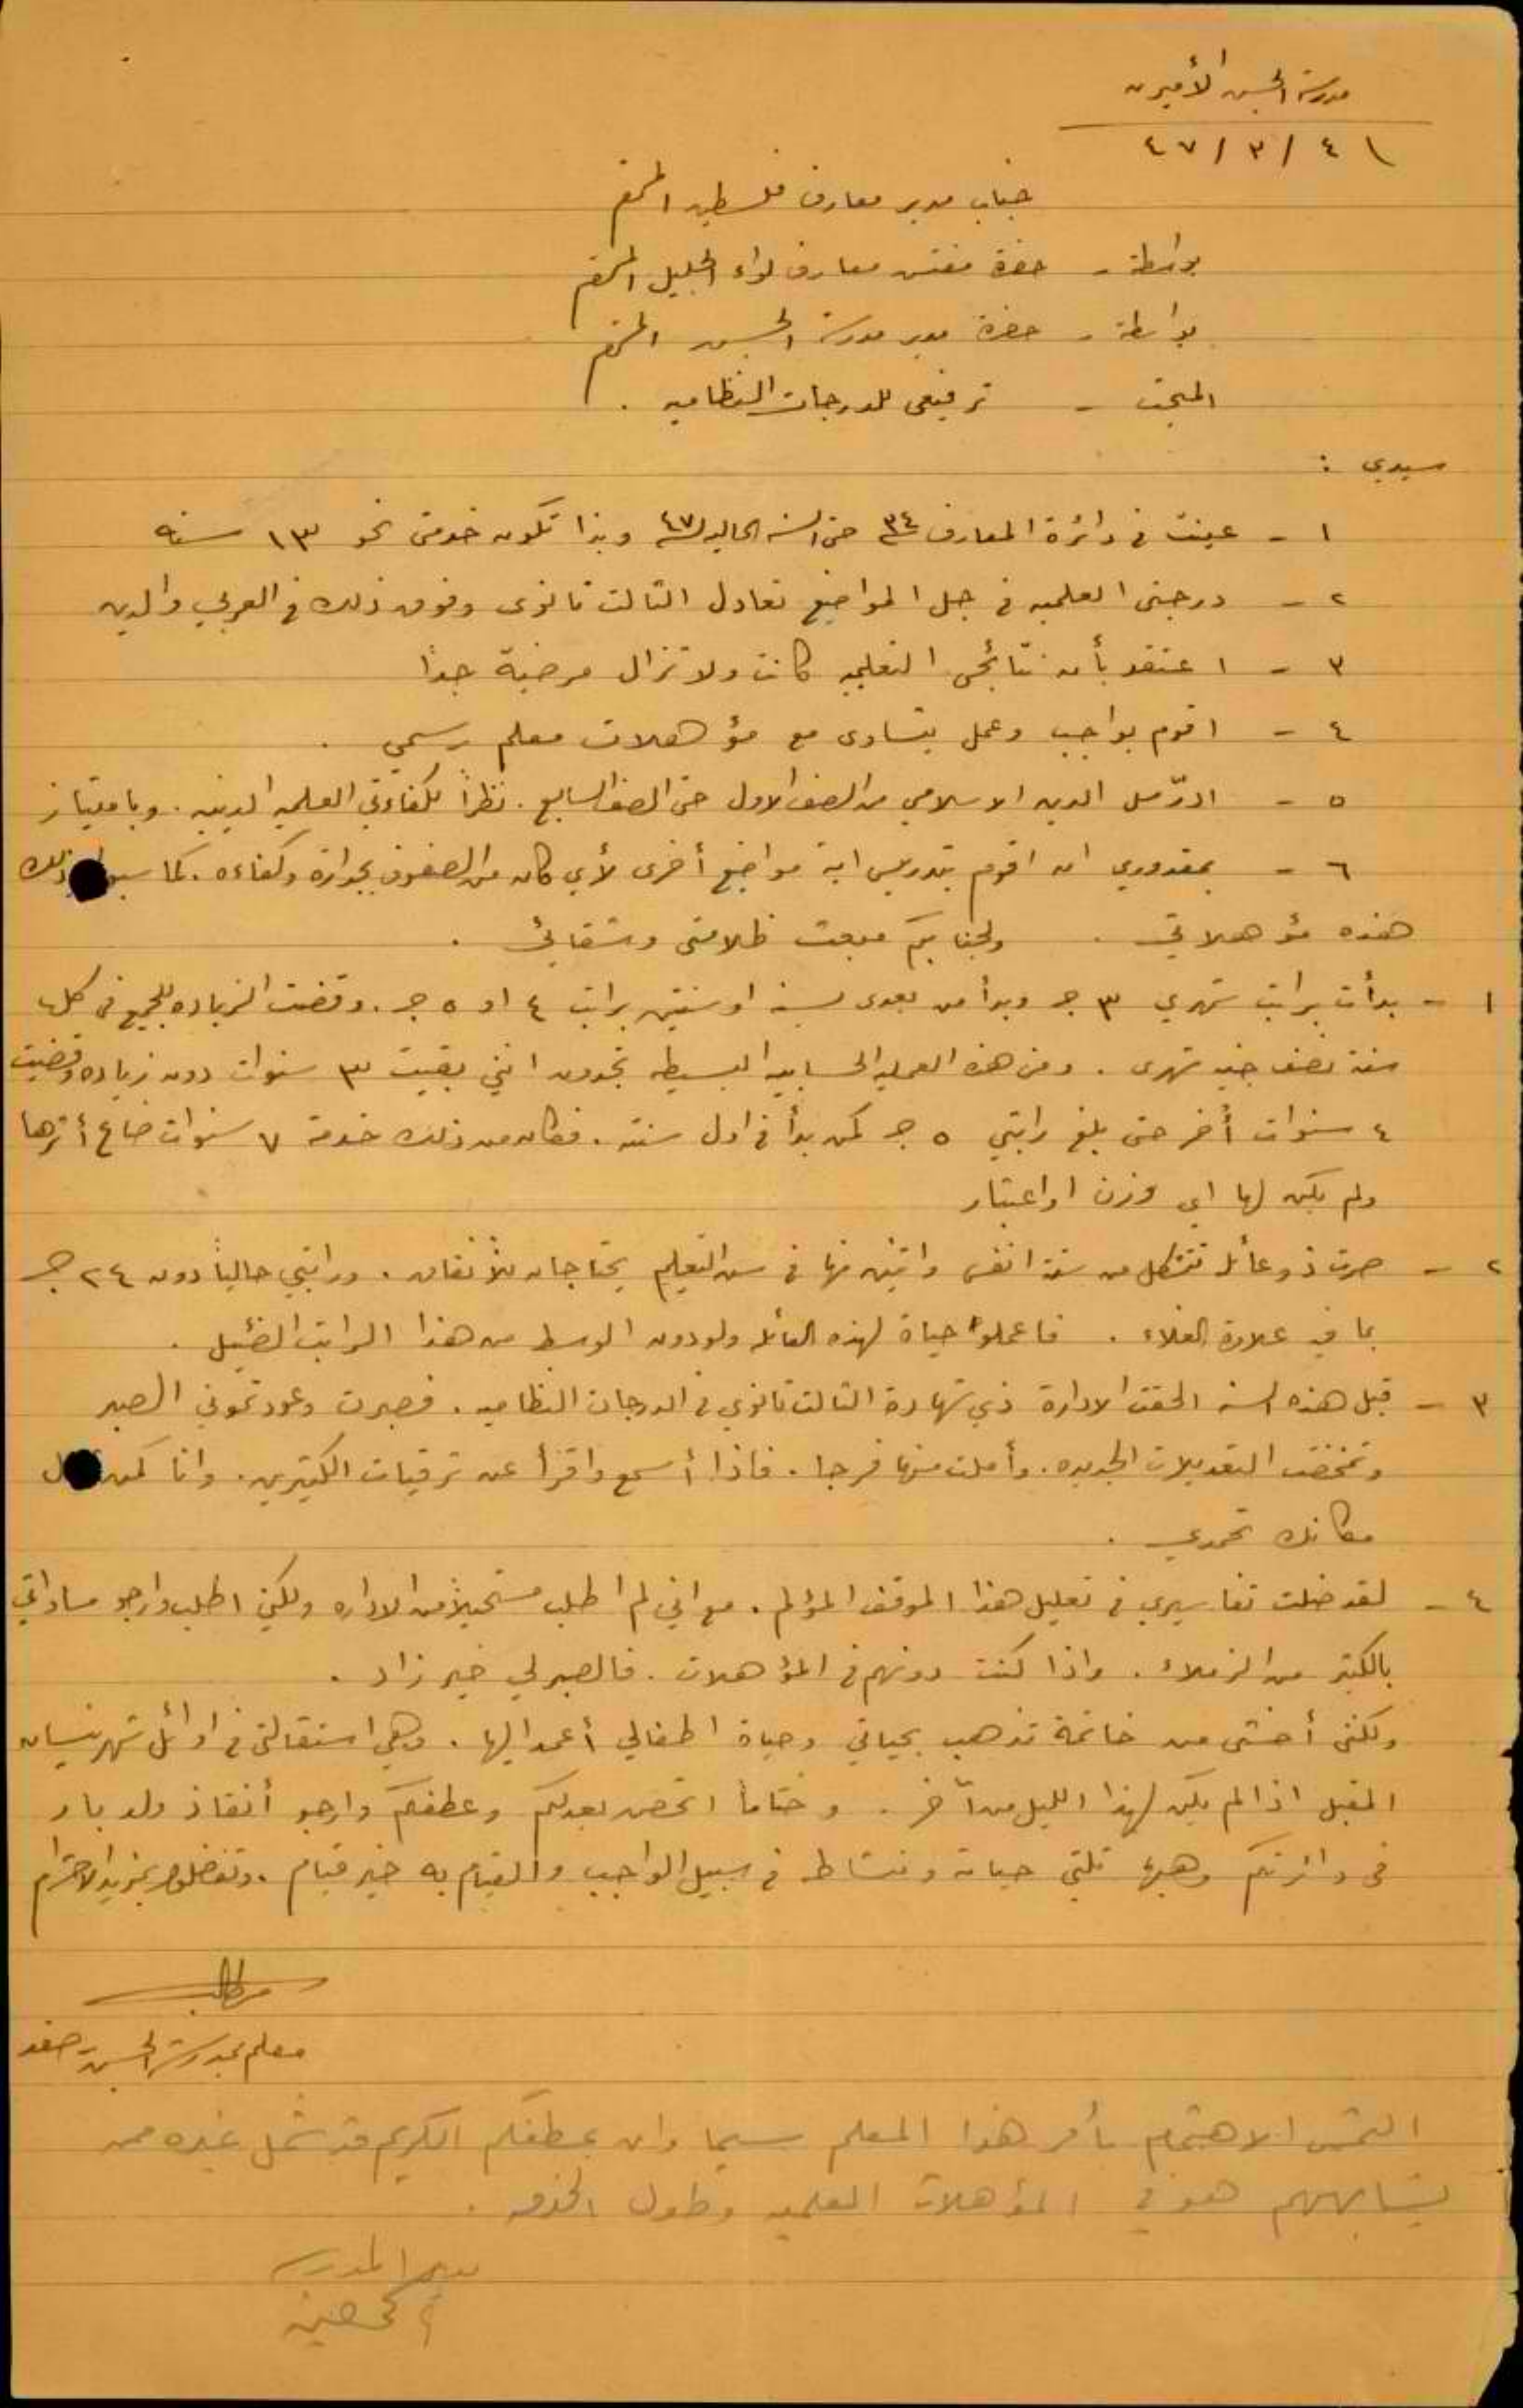 مدرسة الحسين الأميرية
١٤ / ٣ / ٤٧
جناب مدير معارف فلسطين المحترم
بواسطة - حضرة مفتش معارف لواء الجليل المحترم
بواسطة - حضرة مدير مدرسة الحسين المحترم
المبحث - ترفيعي للدرجات النظاميه .
سيدي :
١ - عينت في دائرة المعارف ٣٤ حتى السنه الحاليه ٤٧ وبذا تكون خدمتي نحو ١٣ سنه
٢ - درجتي العلميه في جل المواضيع تعادل الثالث ثانوى وفوق ذلك في العربي والدين
٣ - اعتقد بأن نتائجي التعليميه كانت ولا تزال مرضية جداً
٤ - اقوم بواجب وعمل يتساوى مع مؤهلات معلم رسمي .
٥ - ادرّس الدين الاسلامي من الصف الاول حتى الصف السابع . نظراً لكفاءتي العلميه الدينيه . وبامتياز
٦ - بمقدوري ان اقوم بتدريس اية مواضيع أخرى لأي كان من الصفوف بجدارة وكفاءه . كما ذلك
هذه مؤهلاتي . ولجنابكم مبعث ظلامتي وشقائي .
١ - بدأت براتب شهري ٣ ج وبدأ من بعدى بسنة او سنتين براتب ٤ او ٥ ج . وقضت الزياده للجميع في كل
سنة نصف جنيه شهرى . ومن هذه العمليه الحسابيه البسيطه تجدون انني بقيت ٣ سنوات دون زياده وقضيت
٤ سنوات أخر حتى بلغ راتبي ٥ ج كمن بدأ في اول سنته . فكان من ذلك خدمة ٧ سنوات ضاع أثرها
ولم يكن لها اي وزن او اعتبار
٢ - صرت ذو عائله تتشكل من ستة انفس واثنين منها في سن التعليم يحتاجان للأنفاق . وراتبي حالياً دون ٢٤ ج
بما فيه علاوة الغلاء . فاعملوا حياة لهذه العائله ولو دون الوسط من هذا الراتب الضئيل .
٣ - قبل هذه السنه الحقت الادارة ذي شهادة الثالث ثانوي في الدرجات النظاميه . فصبرت وعودتموني الصبر
وتمخضت التعديلات الجديده . وأملت منها فرجا . فاذا أسمع واقرأ عن ترقيات الكثيرين . وانا كمن
مكانك تحمدي .
٤ - لقد ضلت تفاسيري في تعليل هذا الموقف المؤلم . مع اني لم اطلب مستحيلاً من الاداره ولكني اطلب وارجو مساواتي
بالكثير من الزملاء . واذا كنت دونهم في المؤهلات . فالصبر لي خير زاد .
ولكني أخشى من خاتمة تذهب بحياتي وحياة اطفالي أعمد اليها . وهي استقالتي في اوائل شهر نيسان
المقبل اذا لم يكن لهذا الليل من آخر . وختاماً اتحصن بعدلكم وعطفكم وارجو أنقاذ ولد بار
في دائرتكم وهبها حياته ونشاطه في سبيل الواجب والقيام به خير قيام . وتفضلوا بمزيد الاحترام
معلم بمدرسة الحسين صفد
التمس الاهتمام بأمر هذا المعلم سيما وان عطفكم الكريم قد شمل غيره ممن
يشابههم هو في المؤهلات العلميه وطول الخدمه .
مدير المدرسه